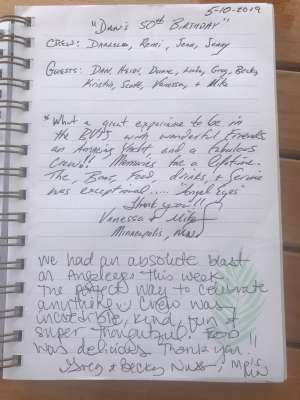 5-10-2019
"Dan's 50th Birthday"
Crew: Remi, Jenn, Jenny
Guests: Dan, Heidi, Duane, Greg, Becky
Kristin, Scott, Vanessa, + Mike
* What a great experience to be in
the BVI's with wonderful Friends
an Amazing Yacht and a Fabulous
Crew!! Memories for a lifetime.
The Boat, Food, drinks, & Service
was exceptional.... "Angel Eyes"
Thank you!!
Vanessa & Mike
Minneapolis,
We had an absolute blast
on Angeleyes this week.
The perfect way to celebrate
anything Crew was
incredible, kind, fun &
super thoughtful. Food
was delicious Thank you!!
Greg & Becky